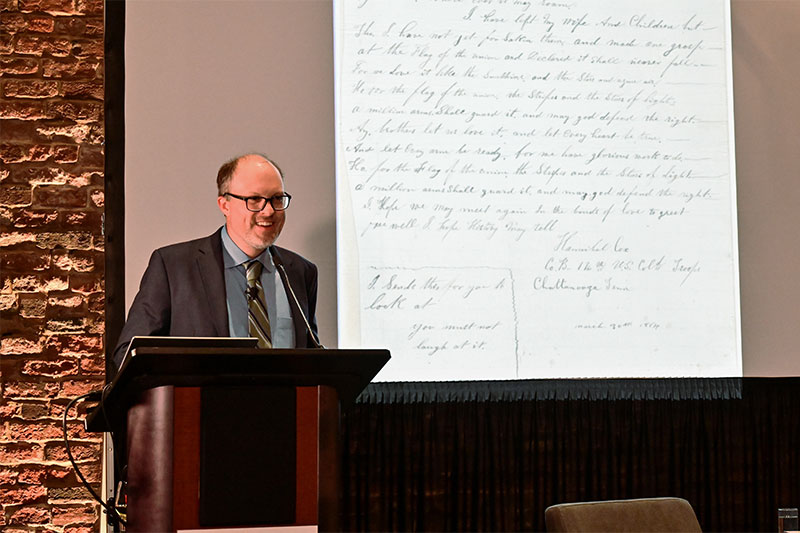 I have left my wife And Children but
Tho I have not yet forsaken them, and made one grasp
at the Flag of the union and Declared it shall never fall
For we love it like the Sunshine, and the Stars and azure air,
Ho for the flag of the union, the Stripes and the Stars of Light
a million arms Shall guard it, and may god defend the right
Ay, brothers let us love it, and let Every heart be true,
And let Evry arm be ready, for we have glorious work to do
Ho for the Flag of the union, the Stripes and the Stars of Light
a million arms Shall guard it, and may god defend the right
I Hope we may meet again In the bonds of love to greet
fare well I hope History may tell
Hannibal Cox
Co. B. 14th U.S. Cold Troops
Chattanooga Tenn
march 30th 1864
I Sends this for you to
look at
you must not
laugh at it.